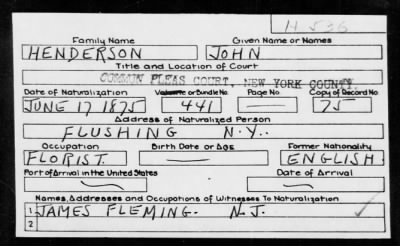 H 536
Family Name Given Name or Names
HENDERSON JOHN
Title and Location of Court
COMMON PLEAS COURT, NEW YORK COUNTY.
Date of Naturalization Volume or Bundle No. Page No. Copy of Record No
JUNE 17 1875 441 — 75
Address of Naturalized Person
FLUSHING N.Y..
Occupation Birth Date or Age Former Nationality
FLORIST — ENGLISH
Port of Arrival in the United States Date of Arrival
Names, Addresses and Occupations of Witnesses To Naturalization
1 JAMES FLEMING. N.J.
2